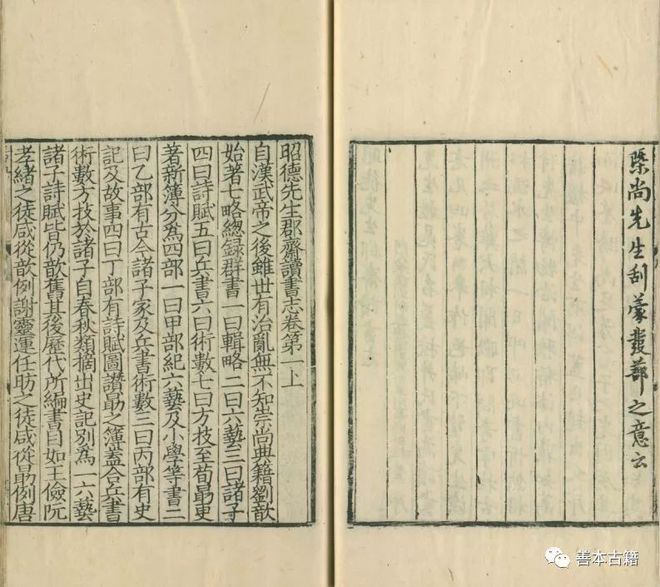 槩尚先生刮蒙發蔀之意云
昭德先生郡齋讀書志卷第一上
自漢武帝之後雖世有治亂無不知崇尚典籍劉歆
始著七略總録群書一曰輯略二曰六藝三曰諸子
四曰詩賦五曰兵書六曰術數七曰方技至荀勗更
著新簿分爲四部一曰甲部紀六藝及小學等書二
曰乙部有古今諸子家及兵書術數三曰丙部有史
記及故事四曰丁部有詩賦圖讚勗之簿蓋合兵書
術數方技於諸子自春秋類摘出史記別爲一六藝
諸子詩賦皆仍歆舊其後歷代所編書目如王儉阮
孝緒之徒咸從歆例謝靈運任昉之徒咸從勗例唐
善本古籍